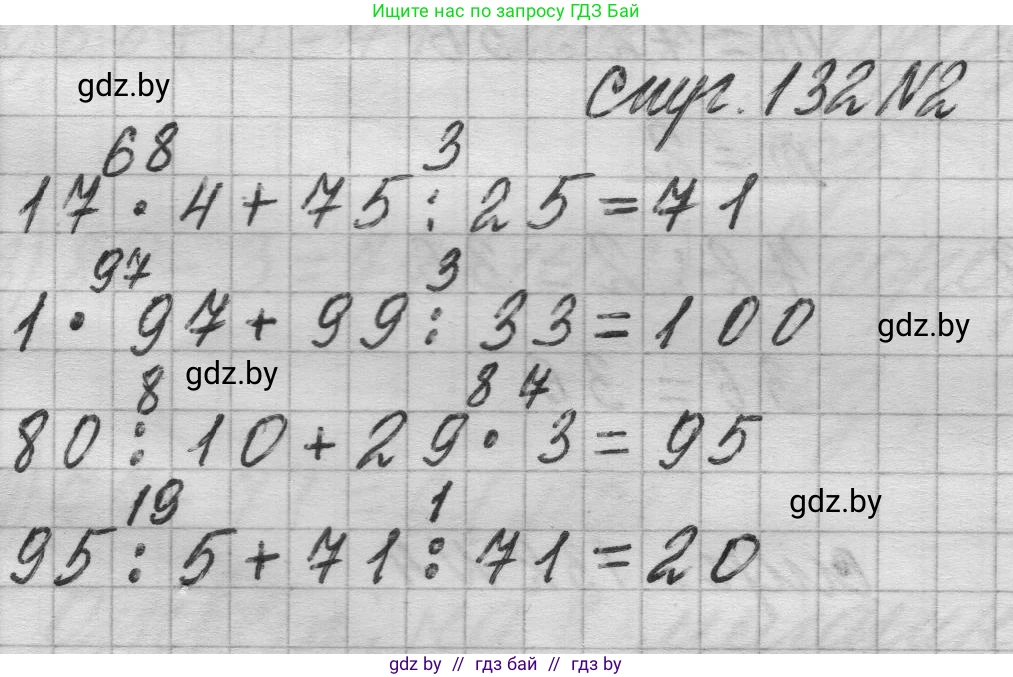 Ищите нас по запросу ГДЗ Бай
gdz.by
стр. 132 №2
68 3
17 · 4 + 75 : 25 = 71
97 3
1 · 97 + 99 : 33 = 100
gdz.by
gdz.by
8 87
80 : 10 + 29 · 3 = 95
gdz.by
19 1
95 : 5 + 71 : 71 = 20
gdz by // гдз бай // gdz by